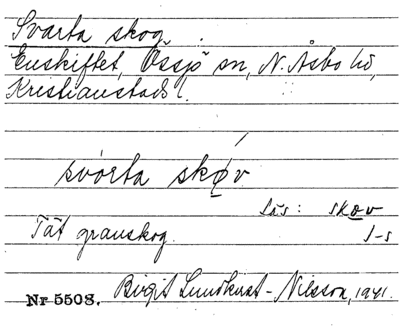 Svarta skog.
Enskiftet, Össjö sn, N. Åsbo hd,
Kristianstads l.
svorta skøv
Läs: skøv
Tät granskog. I-s
Nr 5508. Birgit Lundkvist-Nilsson, 1941.